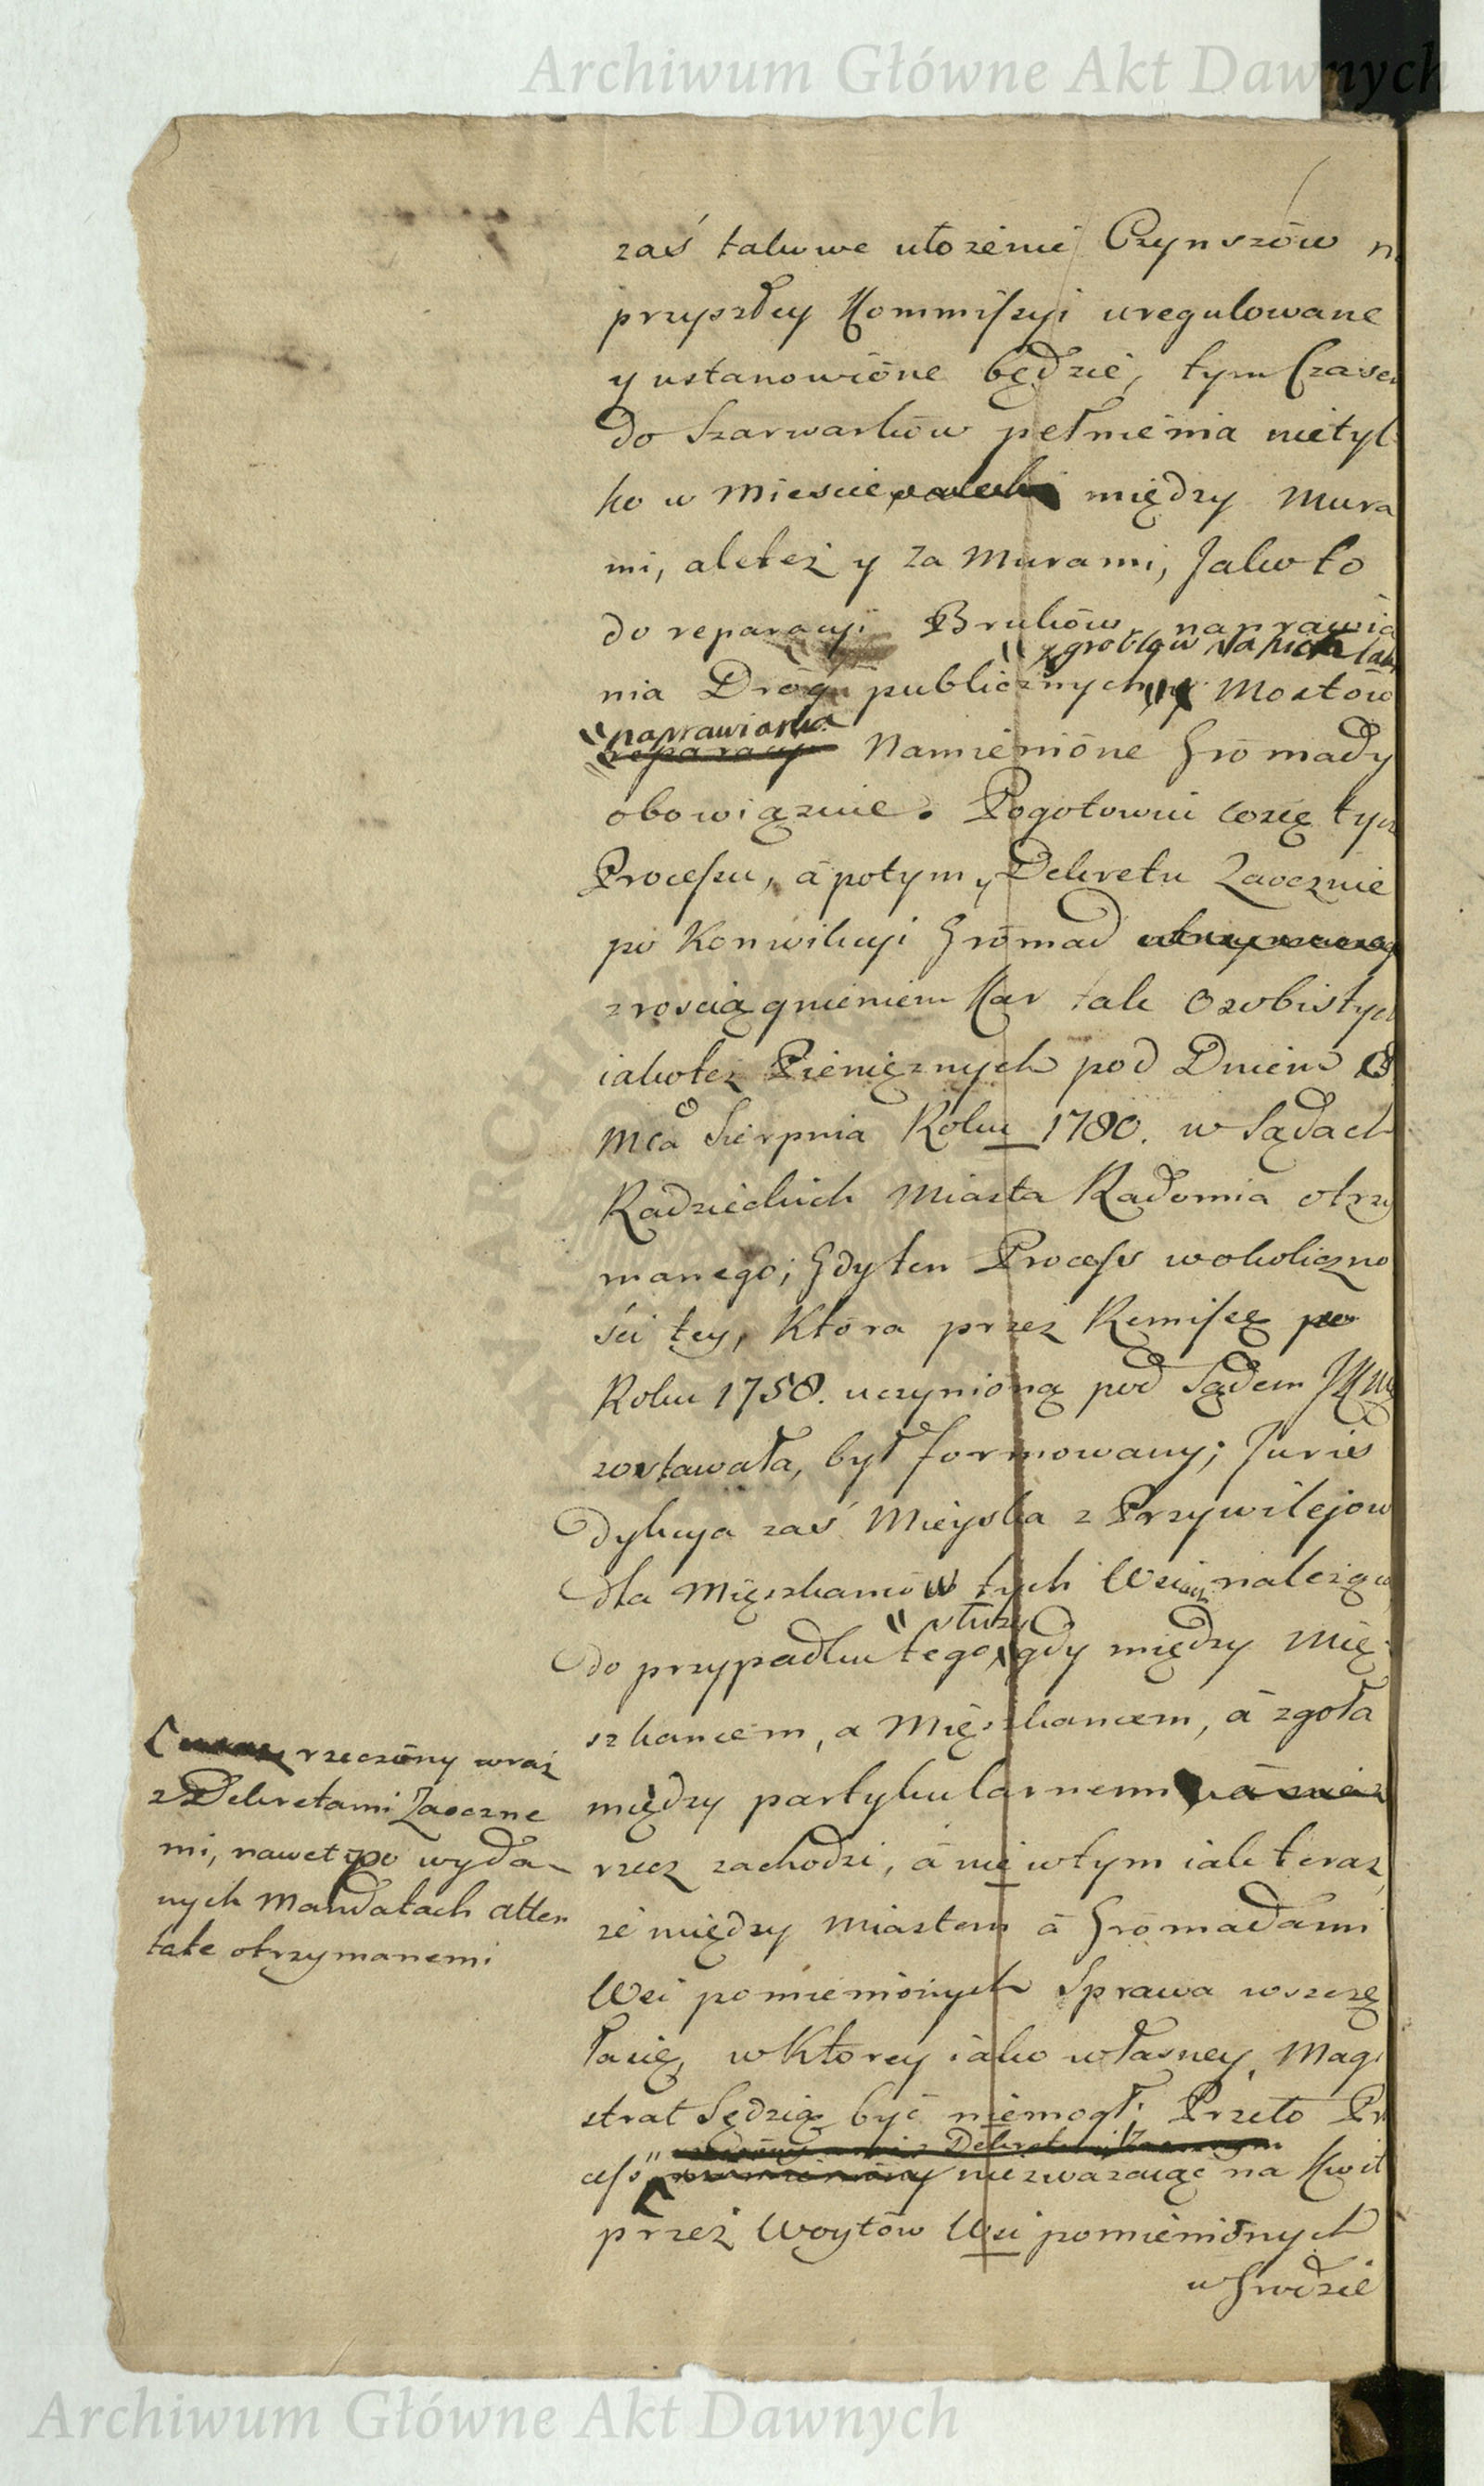 Archiwum Główne Akt Dawnych
zaś takowe ułożenie Czynszów n
przyszłey Kommiſsyi uregulowane
y ustanowióne będzie, tym Czase
do Szarwarków pełnienia nietyl
ko w Miescie między Mura
mi, aleteż y za Murami, Jako to
do reparacyi Bruków, naprawia
y groblow na nich tak
nia Dróg publicznych y Mostów
naprawiania
reparacyi Namienióne Gromady
obowiązuie. Pogotowiu cosię tycz
Proceſsu, á potym y Dekretu Zaocznie
po Konwikcyi Gromad
z rosciągnieniem Kar tak Osobistych
iakoteż Pieniężnych pod Dniem 8
Mca Sierpnia Roku 1780. w Sądach
Radzieckich Miasta Radomia otrzy
manego; Gdy ten Proceſs w okoliczno
ści tey, Która przez Remiſsę
Roku 1758. uczynioną pod Sądem
zostawała, był formowany; Juris
dykcya zaś Mieyska z Przywilejow
dla Mięszkancow tych Wsiach należąca
służy
do przypadku tego, gdy między Mię
szkancem, a Mięszkancem, á zgoła
między partykularnemi
rzecz zachodzi, á nie w tym iak teraz,
że między Miastem á Gromadami
Wsi pomienionych Sprawa wszczę
ła się, w Ktorey iako własney, Magi
strat Sędzią być niemogł; Przeto Pr
oceſs niezważaiąc na Kwit
przez Woytów Wsi pomieniónych
w Grodzie
rzeczóny wraz
z Dekretami Zaoczne
mi, nawet po wyda
nych Mandatach atten
tate otrzymanemi
Archiwum Główne Akt Dawnych